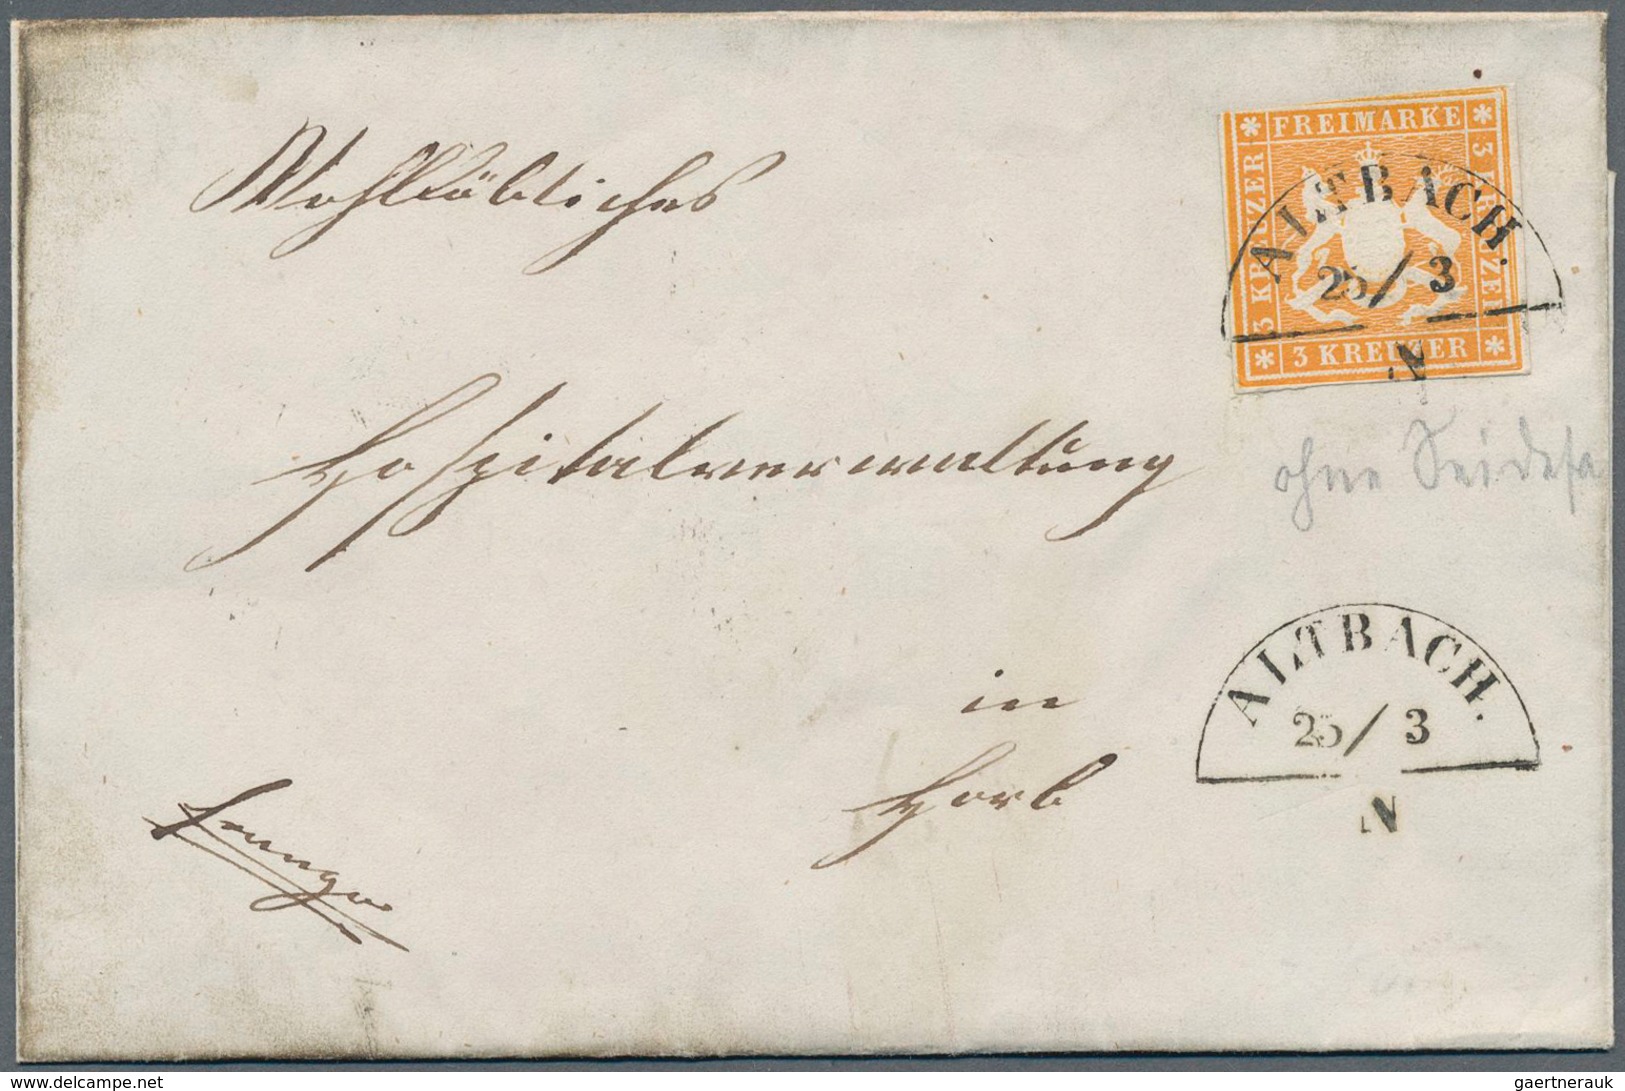 Wohllöbliches
FREIMARKE
3 KREUZER
3 KREUZER
3 KREUZER
ALTBACH.
25 / 3
N
Hospitalverwaltung
ohne Seidefa
in
Horb
ALTBACH.
25 / 3
N
www.delcampe.net
gaertnerauk